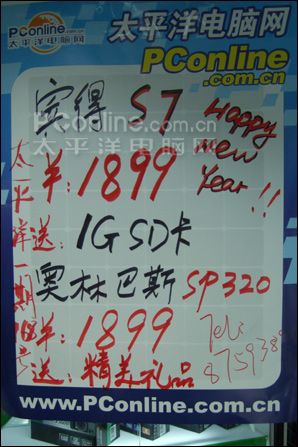 PConline
太平洋电脑网
太平洋电脑网
PConline
.com.cn
宾得 S7
Happy
new
Year !!
PConline.com.cn
太平洋电脑网
羊:1899
送: 1G SD卡
奥林巴斯 SP320
羊:1899
送: 精美礼品
太平洋一期
168号
Tel:
875938
www.PConline.com.cn